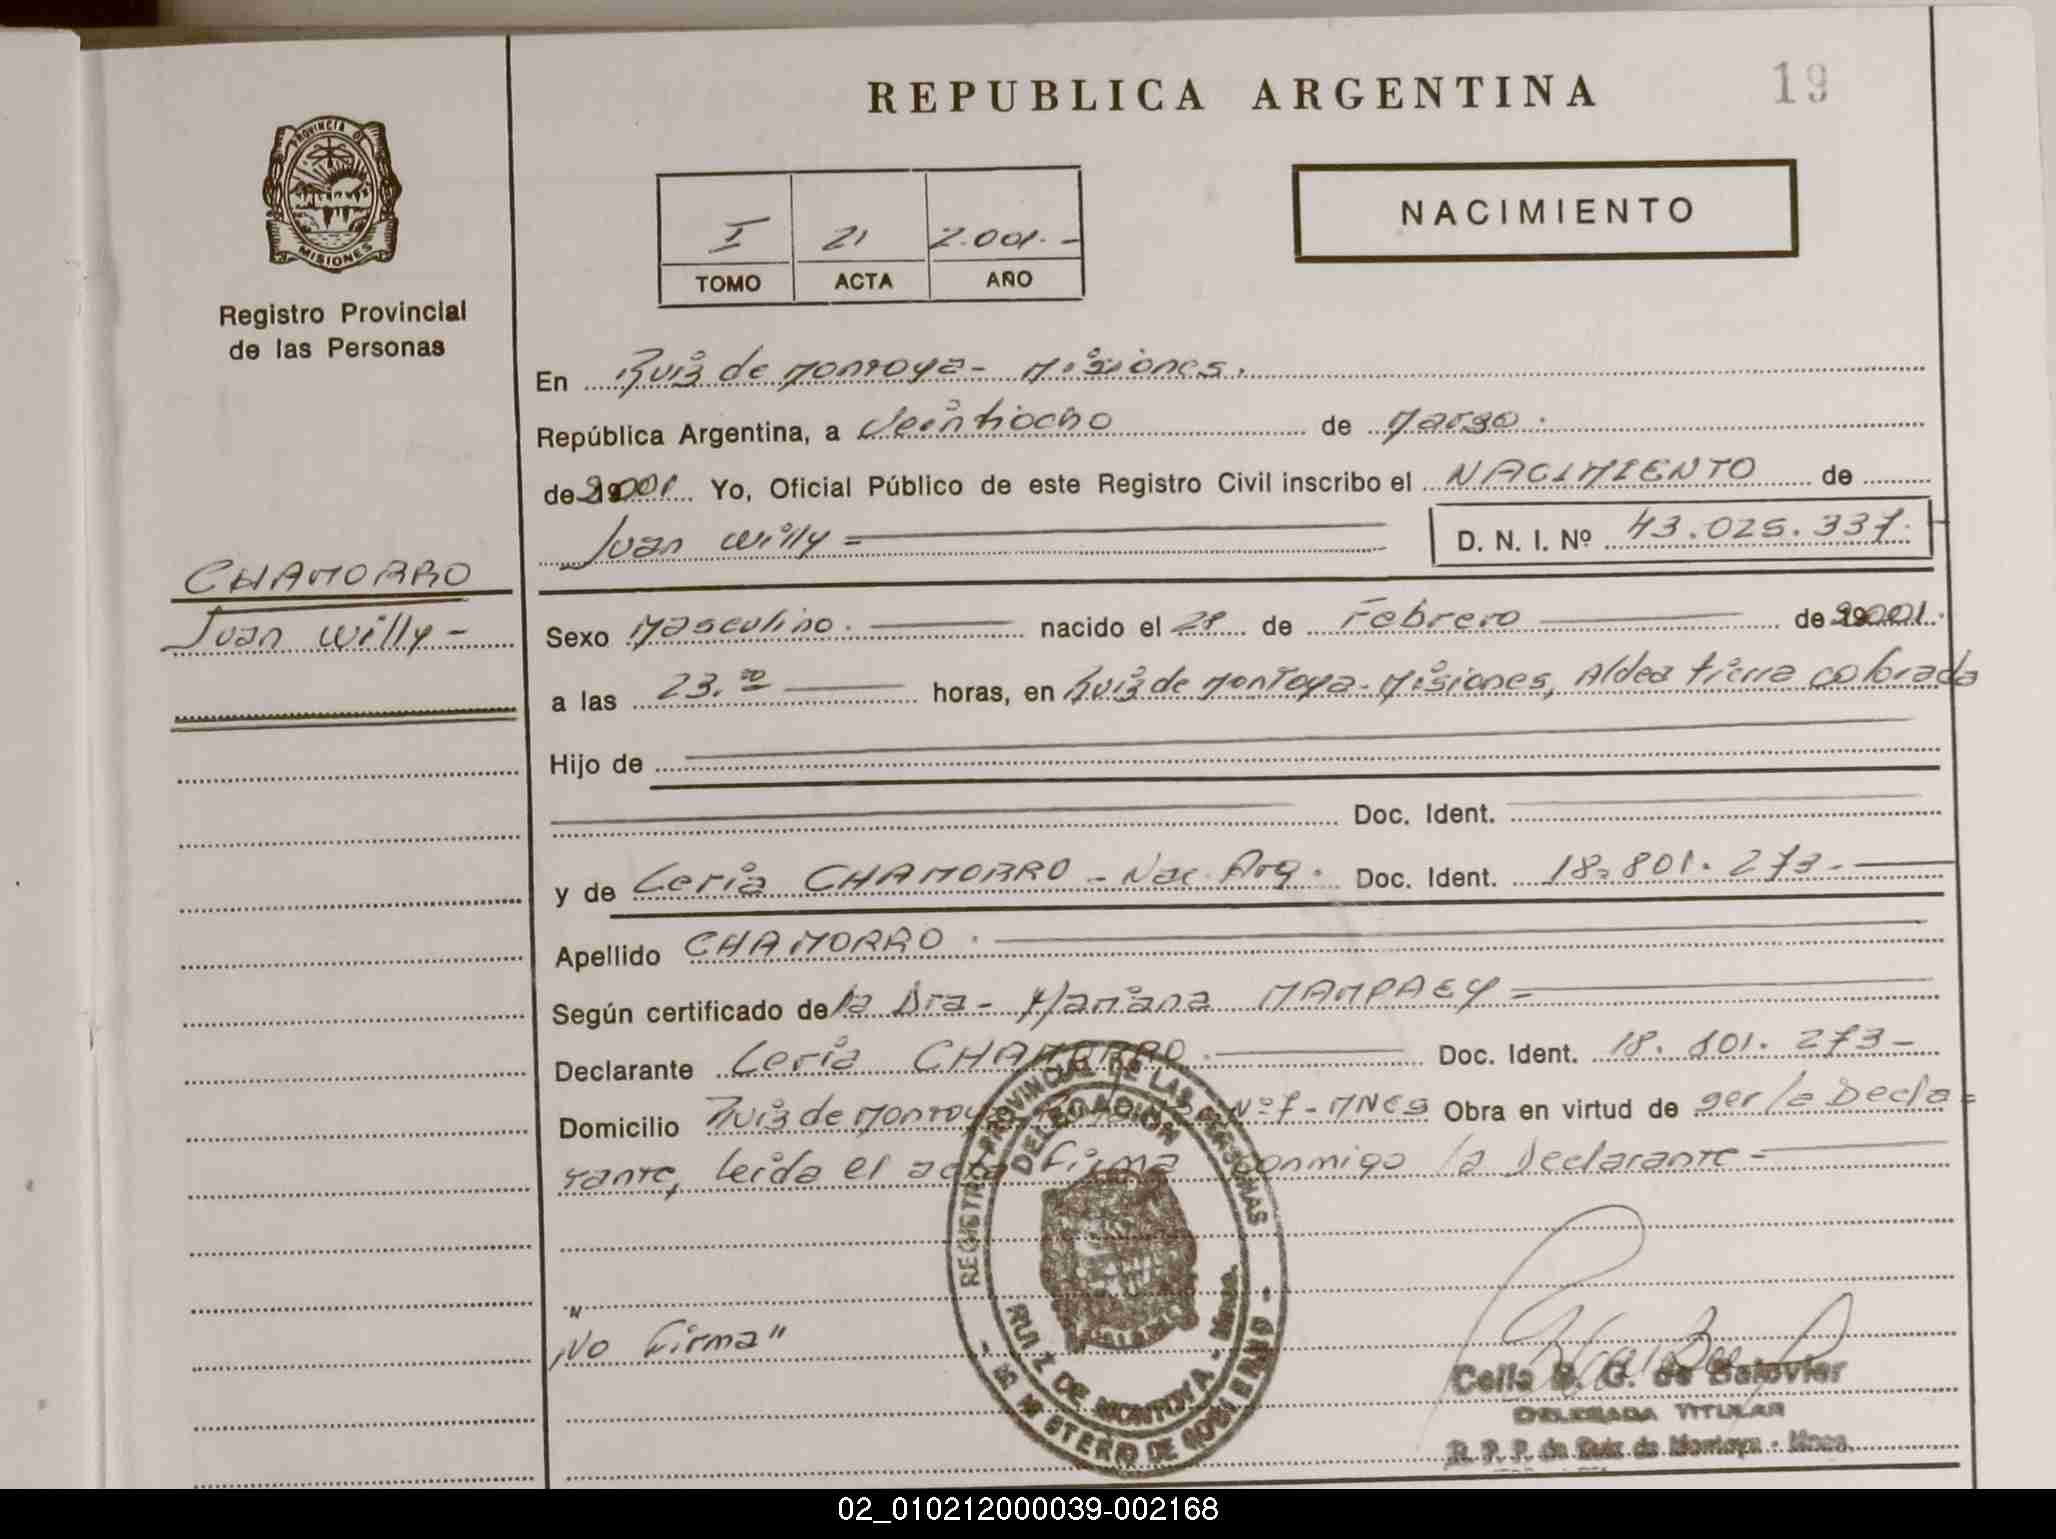 REPUBLICA ARGENTINA
19
PROVINCIA DE
MISIONES
Registro Provincial
de las Personas
I 21 2.001.-
TOMO ACTA AÑO
NACIMIENTO
En Ruiz de Montoya - Misiones.
República Argentina, a Veintiocho de Marzo.
de 2.001 Yo, Oficial Público de este Registro Civil inscribo el NACIMIENTO de
Juan Willy = D. N. I. Nº 43.025.337.
CHAMORRO
Juan Willy -
Sexo Masculino. nacido el 28 de Febrero de 2001.
a las 23.00 horas, en Ruiz de Montoya - Misiones, Aldea tierra colorada
Hijo de
Doc. Ident.
y de Leria CHAMORRO - Nac. Arg. Doc. Ident. 18.801.273-
Apellido CHAMORRO.
Según certificado de la Dra - Mariana MAMPAEY =
Declarante Leria CHAMORRO. Doc. Ident. 18.801.273-
Domicilio Ruiz de Montoya Nº 7 - MNES Obra en virtud de ser la Decla=
rante, leida el acta firma conmigo la Declarante -
"No firma"
REGISTRO PROVINCIAL DE LAS PERSONAS
DELEGACION
RUIZ DE MONTOYA - Mnes.
- MINISTERIO DE GOBIERNO -
Celia B. G. de Balovier
DELEGADA TITULAR
R. P. P. de Ruiz de Montoya - Mnes.
02_010212000039-002168